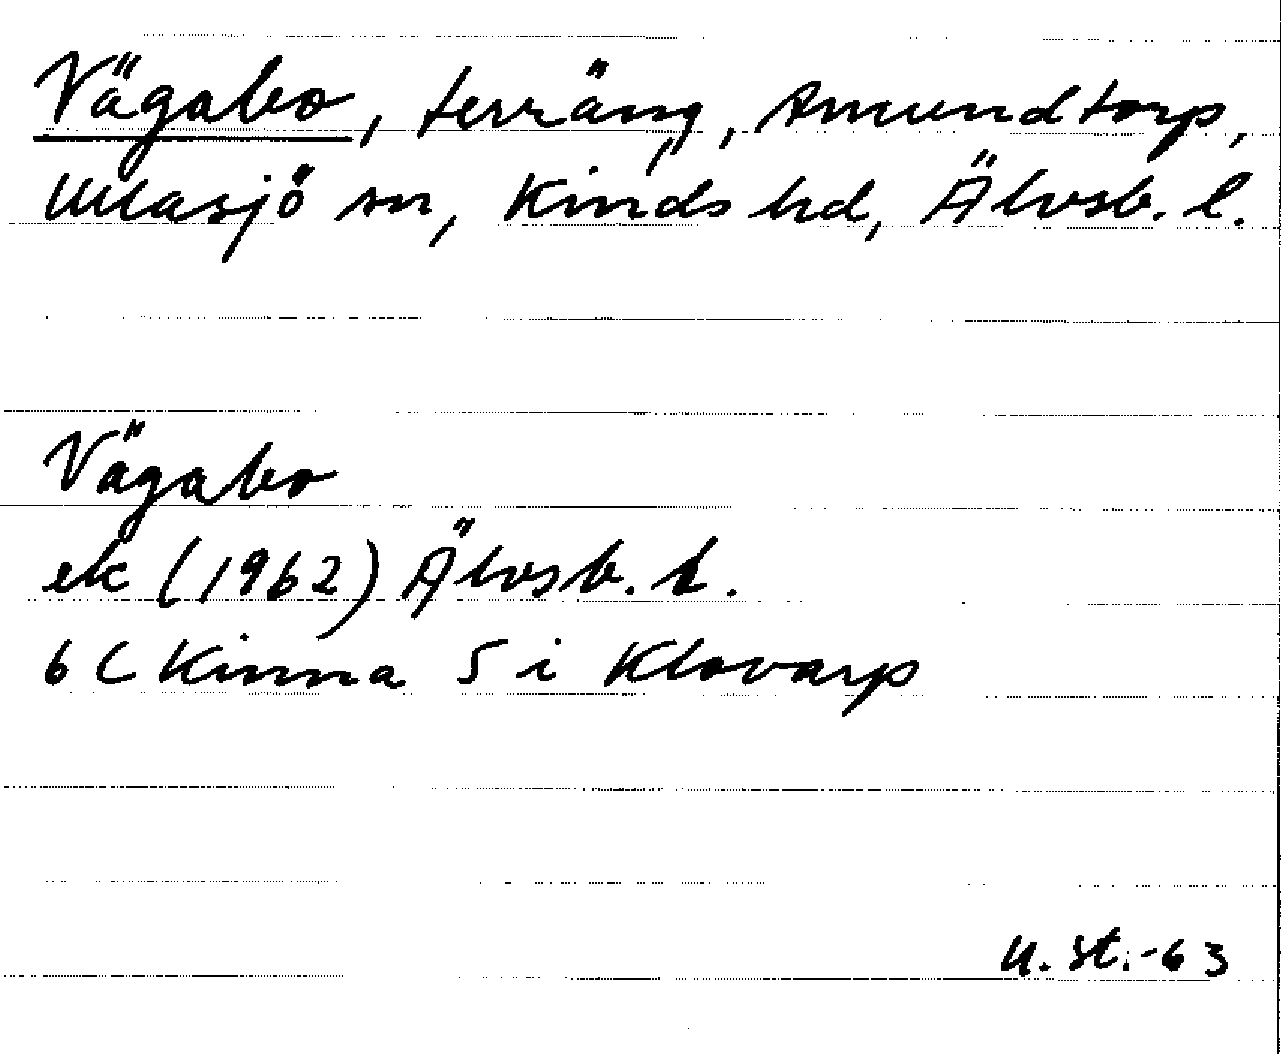 Vägabo, terräng, Amundtorp,
Ullasjö sn, Kinds hd, Älvsb. l.
Vägabo
ek (1962) Älvsb. L.
6 C Kinna 5 i Klovarp
U. St. -63